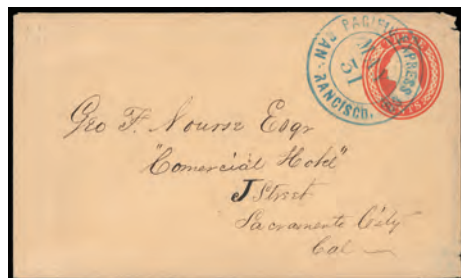 PACIFIC EXPRESS
31
SAN FRANCISCO.
Geo F. Nourse Esqr
"Comercial Hotel"
J Street
Sacramento City
Cal